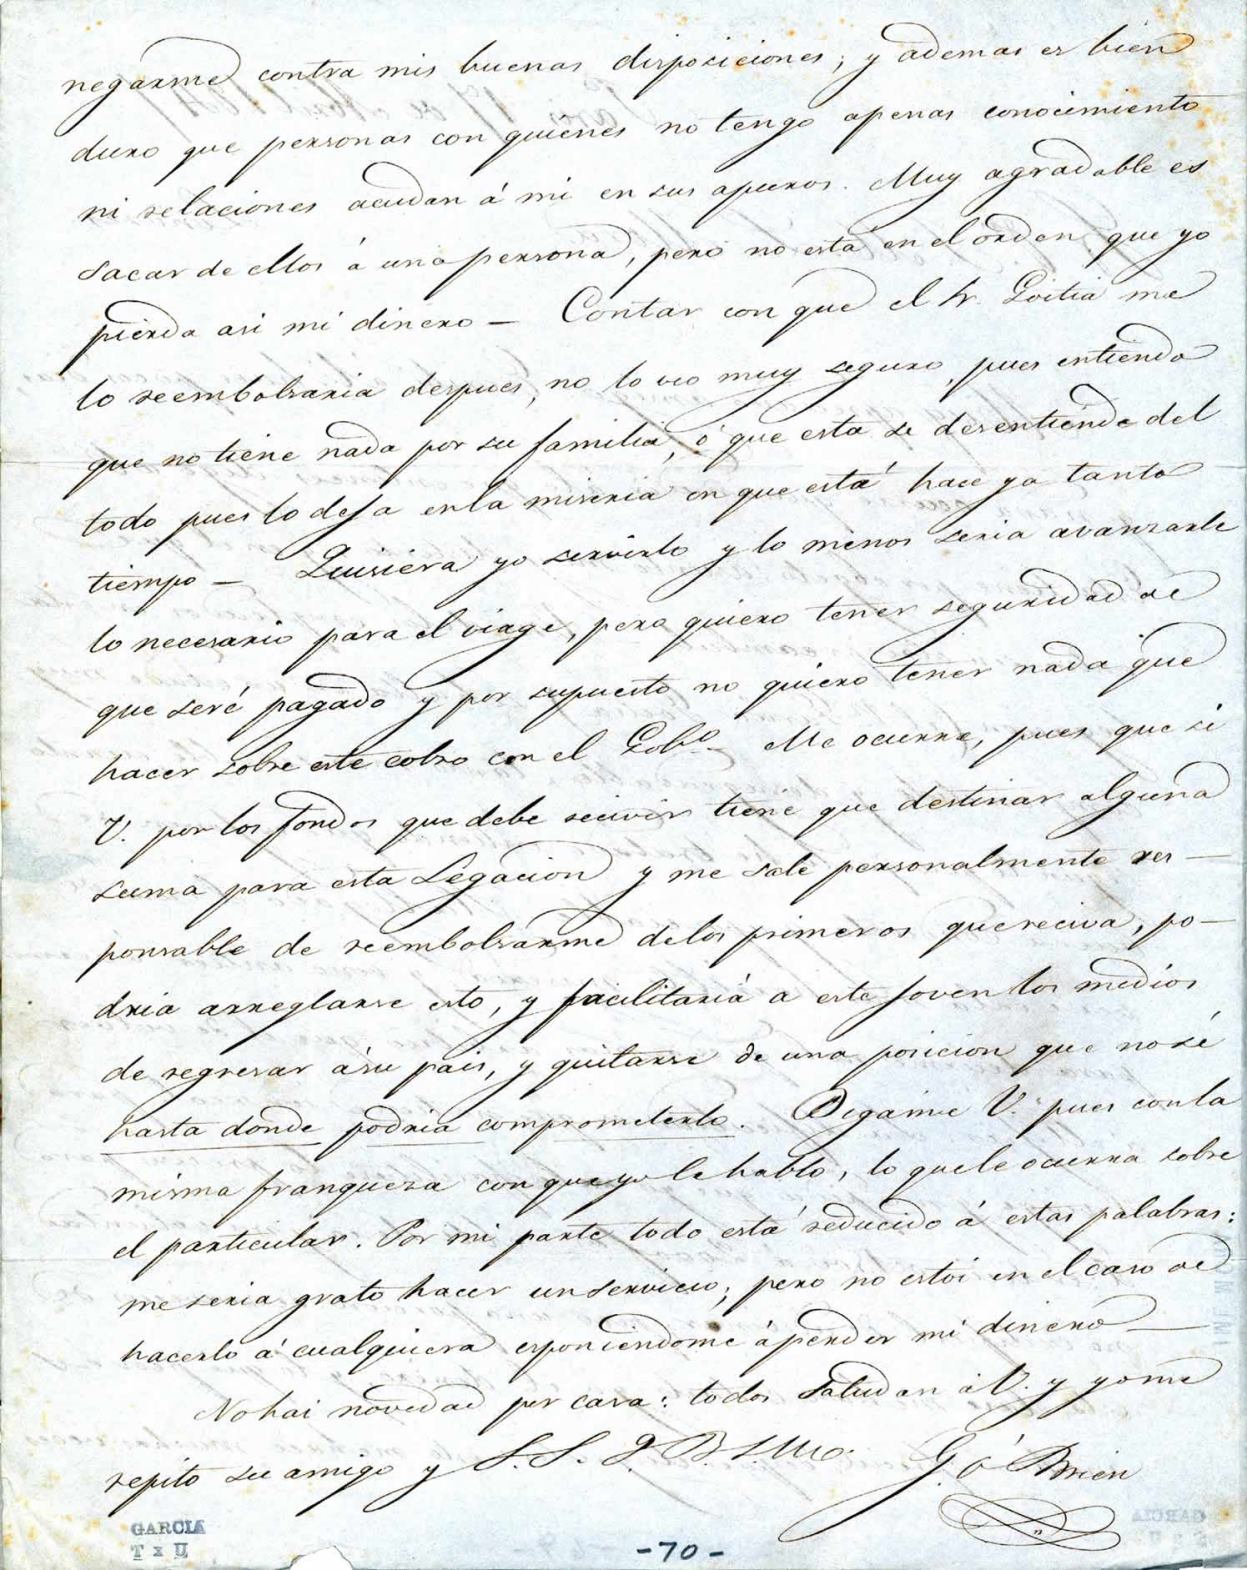 negarme contra mis buenas disposiciones; y ademas es bien
duro que personas con quienes no tengo apenas conocimiento
ni relaciones acudan á mi en sus apuros. Muy agradable es
sacar de ellos á una persona, pero no está en el orden que yo
pierda asi mi dinero — Contar con que el Sr. Goitia me
lo reembolsaria despues, no lo veo muy seguro, pues entiendo
que no tiene nada por su familia, ó que esta se desentiende del
todo pues lo deja en la miseria en que está hace ya tanto
tiempo — Quisiera yo servirlo y lo menos seria avanzarle
lo necesario para el viage, pero quiero tener seguridad de
que seré pagado y por supuesto no quiero tener nada que
hacer sobre este cobro con el Gobo. Me ocurre, pues que si
V. por los fondos que debe recivir tiene que destinar alguna
suma para esta Legacion y me sale personalmente res-
ponsable de reembolsarme de los primeros que reciva, po-
dria arreglarse esto, y facilitaria a este joven los medios
de regresar á su pais, y quitarse de una posicion que no sé
hasta donde podria comprometerlo. Digame V. pues con la
misma franqueza con que yo le hablo, lo que le ocurra sobre
el particular. Por mi parte todo está reducido á estas palabras:
me seria grato hacer un servicio; pero no estoi en el caso de
hacerlo á cualquiera esponiendome á perder mi dinero —
No hai novedad por casa: todos saludan á V. y yo me
repito su amigo y S. S. Q. B. S. M.
G. ó Brien
GARCIA
T x U
-70-